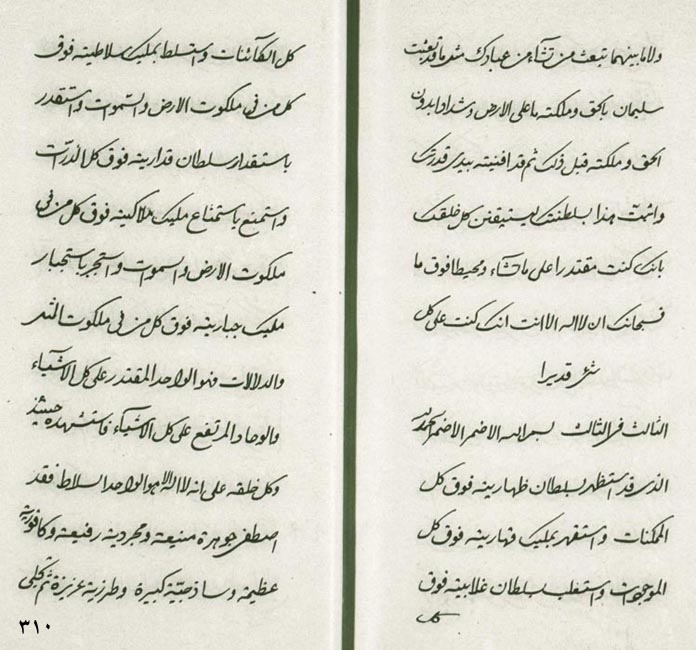 ولا ما بينهما تبعث من تشاء من عبادك مثل ما قد بعثت
سليمان بالحق وملكته ما على الارض وشداد ابدون
الحق وملكته قبل ذلك ثم قد افنيته بيدي قدرتك
واثبت هذا بسلطنتك ليستيقنن كل خلقك
بانك كنت مقتدرا على ما تشاء ومحيطا فوق ما
فسبحانك ان لا اله الا انت انك كنت على كل
شئ قديرا
الثالث فى الثالث بسم الله الاضهر الاضهر الحمد لله
الذى قد استظهر بسلطان ظهاريته فوق كل
الممكنات واستقهر بمليك قهاريته فوق كل
الموجودات واستغلب بسلطان غلابيته فوق
كل
كل الكائنات واستسلط بمليك سلاطيته فوق
كل من فى ملكوت الارض والسموات واستقدر
باستقدار سلطان قداريته فوق كل الذرات
واستمنع باستمناع مليك ملاكيته فوق كل من فى
ملكوت الارض والسموات واستجبر باستجبار
مليك جباريته فوق كل من فى ملكوت
والدلالات فهو الواحد المقتدر على كل الاشياء
والوحاد المرتفع على كل الاشياء فاستشهده حينئذ
وكل خلقه على انه لا اله الا هو الواحد السلاط فقد
اصطفى جوهرة منيعة ومجردية رفيعة وكافورية
عظيمة وساذجية كبيرة وطرزية عزيزة ثم تجلى
٣١٠